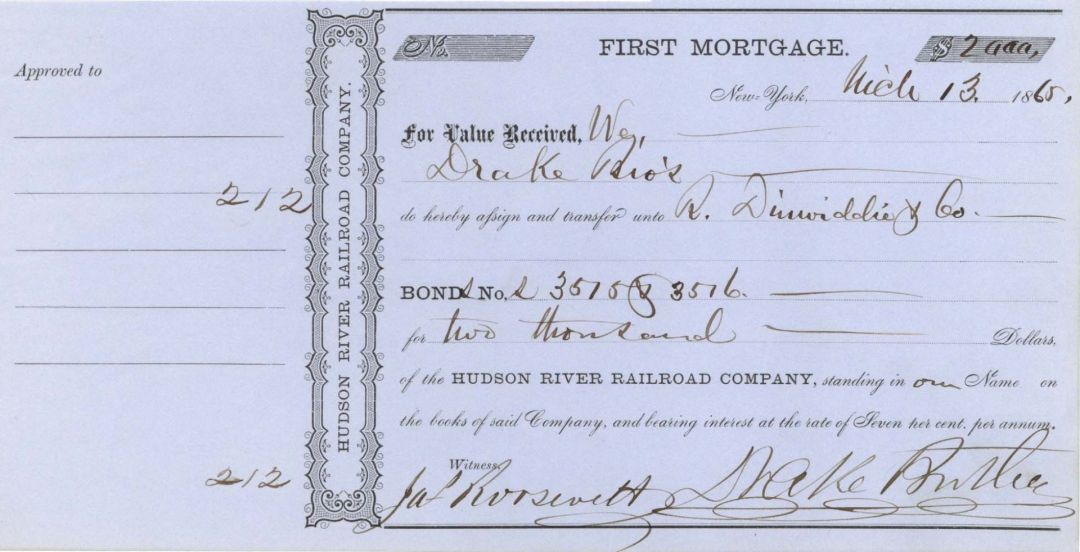 Approved to
212
212
HUDSON RIVER RAILROAD COMPANY.
No.
FIRST MORTGAGE.
$ 2000,
New-York, Mch 13. 1865,
For Value Received, We,
Drake Bro's
do hereby assign and transfer unto R. Dinwiddie & Co.
BONDs No, s 3515 & 3516.
for two thousand Dollars,
of the HUDSON RIVER RAILROAD COMPANY, standing in our Name on
the books of said Company, and bearing interest at the rate of Seven per cent. per annum.
Witness,
Jas Roosevelt Drake Brothers